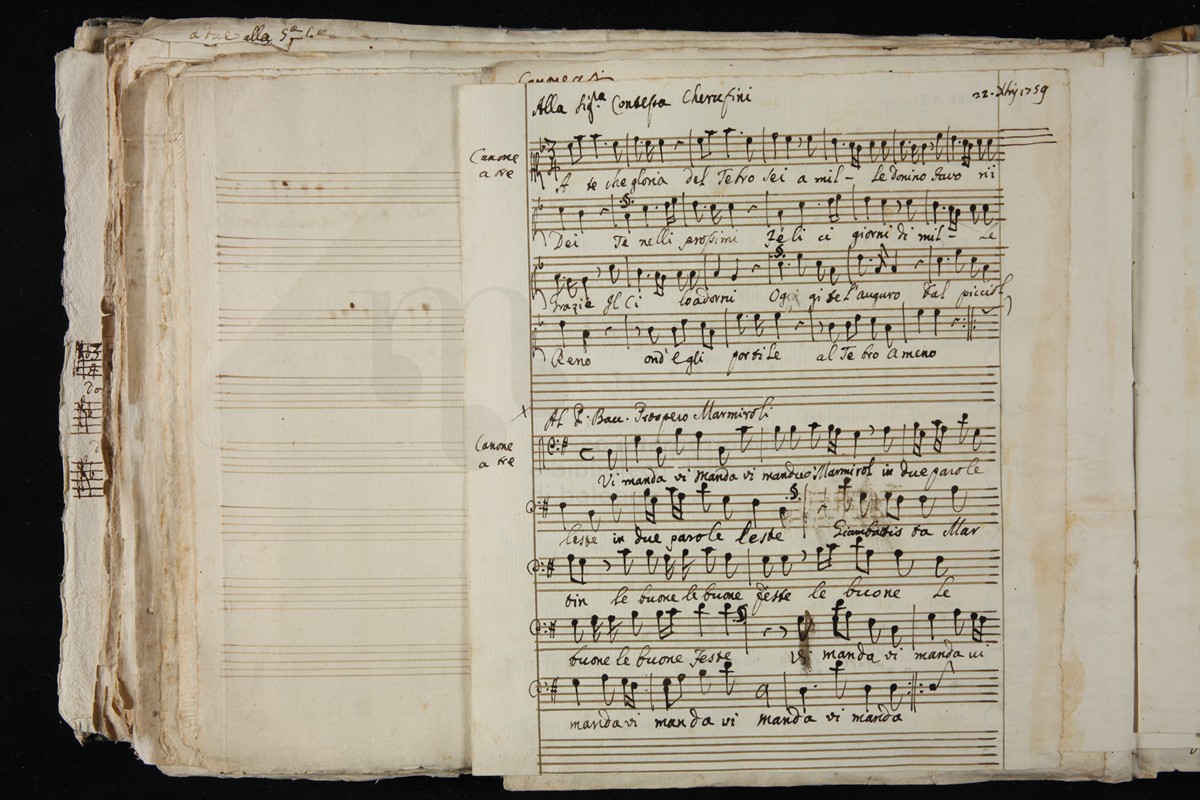 a due alla 5ª
Alla Sigra. Contessa Cherufini
22. Xbre 1759
Canone
a tre
A te che gloria del Tebro sei a mil- le donino favo ri
Dei Te nelli prossimi Feli ci giorni di mil- Le
Grazie Il Ci lo adorni Ogi gi te l'auguro Dal picciol
Reno ond' egli por ti Le al Te bro ameno
Al P. Bac. Prospero Marmiroli
Canone
a tre
Vi manda vi manda vi manda Marmirol in due parole
leste in due parole leste Giambatis ta Mar
tin le buone le buone Feste le buone Le
buone le buone Feste Vi manda vi manda vi
manda vi manda vi manda vi manda